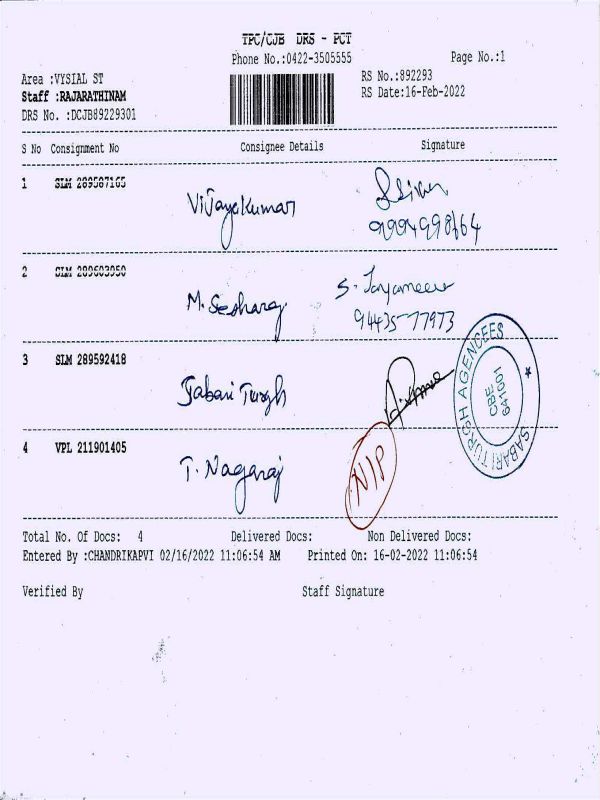 TPC/CJB DRS - PCT
Phone No.:0422-3505555
Page No.:1
Area :VYSIAL ST
RS No.:892293
Staff :RAJARATHINAM
RS Date:16-Feb-2022
DRS No. :DCJB89229301
S No Consignment No Consignee Details Signature
1 SLM 289587165
Vijayakumar
9994998664
2 SLM 289603950
M. Seoharaj
94435 77973
3 SLM 289592418
Sabari Turgh
SABARI TURGH AGENCEES
CBE
641001
4 VPL 211901405
T. Nagaraj
NIP
Total No. Of Docs: 4 Delivered Docs: Non Delivered Docs:
Entered By :CHANDRIKAPVI 02/16/2022 11:06:54 AM Printed On: 16-02-2022 11:06:54
Verified By Staff Signature